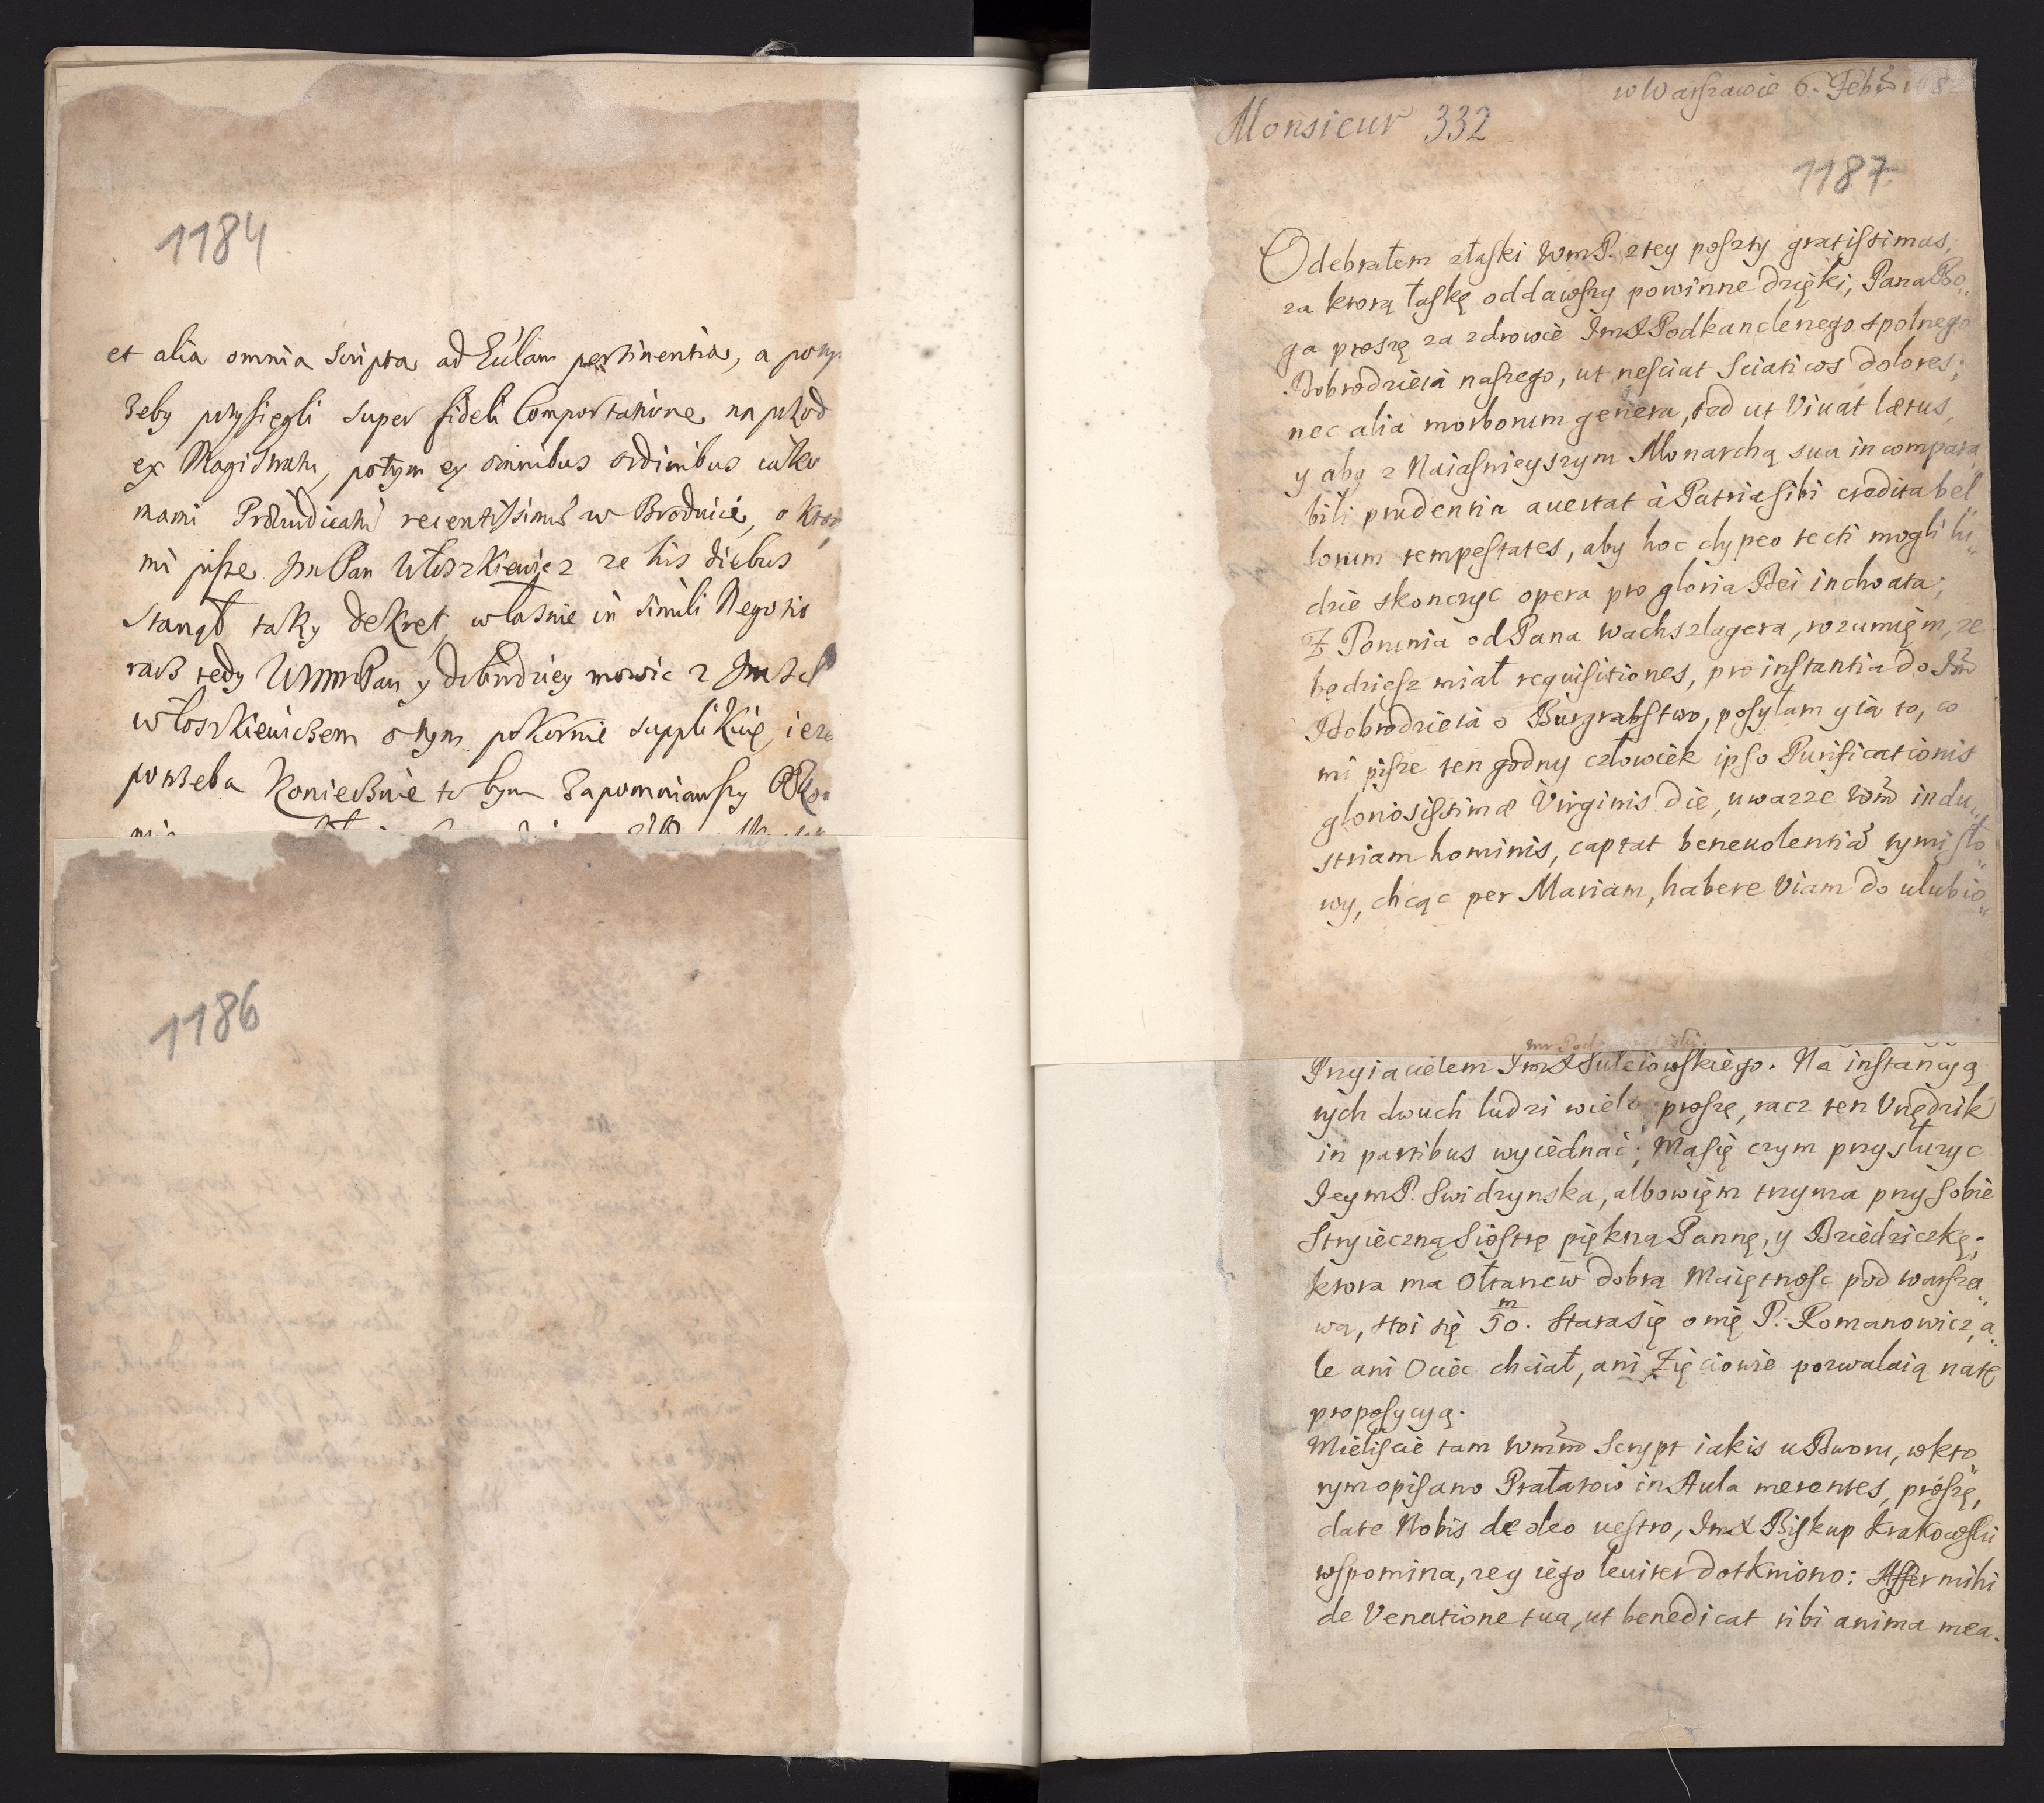 1184
et alia omnia Scripta ad Eulam pertinentia, a potym
żeby przysięgli super fideli Comportatione, na przod
ex Magistratu, potym ex omnibus ordinibus
mami Praeiudicatu recentissimis w Brodnicie, o
mi pisze Jm Pan Włoszkiewicz ze his diebus
stanął taky dekret własnie in simili Negotio
racz tedy WMMPan y dobrodziey mowic z
włoszkiewiczem o tym pokornie supplikuię,
potrzeba Koniecznie
1186
w Warszawie 6. Febr
Monsieur 332
1187
Odebrałem złaski WmP. z tey poszty gratissimas,
za ktorą łaskę oddawszy powinne dzięki, Pana Bo„
ga proszę za zdrowie JmX Podkanclerzego spolnego
Dobrodzieia naszego, ut nesciat Sciaticos dolores;
nec alia morborum genera, sed ut Viuat lætus,
y aby z Naiasnieyszym Monarchą sua incompara„
bili prudentia auertat à Patria sibi credita bel„
lorum tempestates, aby hoc clypeo tecti mogli lu„
dzie skonczyc opera pro gloria Dei inchoata;
Z Torunia od Pana Wachszlagera, rozumięm, ze
będziesz miał requisitiones, pro instantia do Jmć
Dobrodzieia o Burgrabstwo, posyłam y ia to, co
mi pisze ten godny człowiek ipso Purificationis
gloriosissimæ Virginis die, uwazze Wmć indu„
striam hominis, captat beneuolentiã tymi sło„
wy, chcąc per Mariam, habere Viam do ulubio„
Przyiacielem JmX Suleiowskiego. Na instancyą
tych dwuch ludzi wielce proszę, racz ten Urzędzik
in partibus wyiednać; Ma się czym przysłuzyc
JeymP. Swidzynska, albowięm trzyma przy sobie
Stryieczną Siostrę piękną Pannę, y Dziedziczkę;
ktora ma Ołtarzew dobrą Maiętnosc pod Warsza„
wą, stoi się m/50. Stara się o nię P. Romanowicz, a„
le ani Ociec chciał, ani Zięciowie pozwalaią na tę
propozycyą.
Mieliscie tam Wmć Scrypt iakis u Dworu, w kto„
rym opisano Prałatow in Aula merentes, proszę,
date Nobis de oleo uestro, JmX Biskup Krakowski
wspomina, zey iego leuiter dotkniono: Affer mihi
de Venatione tua, ut benedicat tibi anima mea.